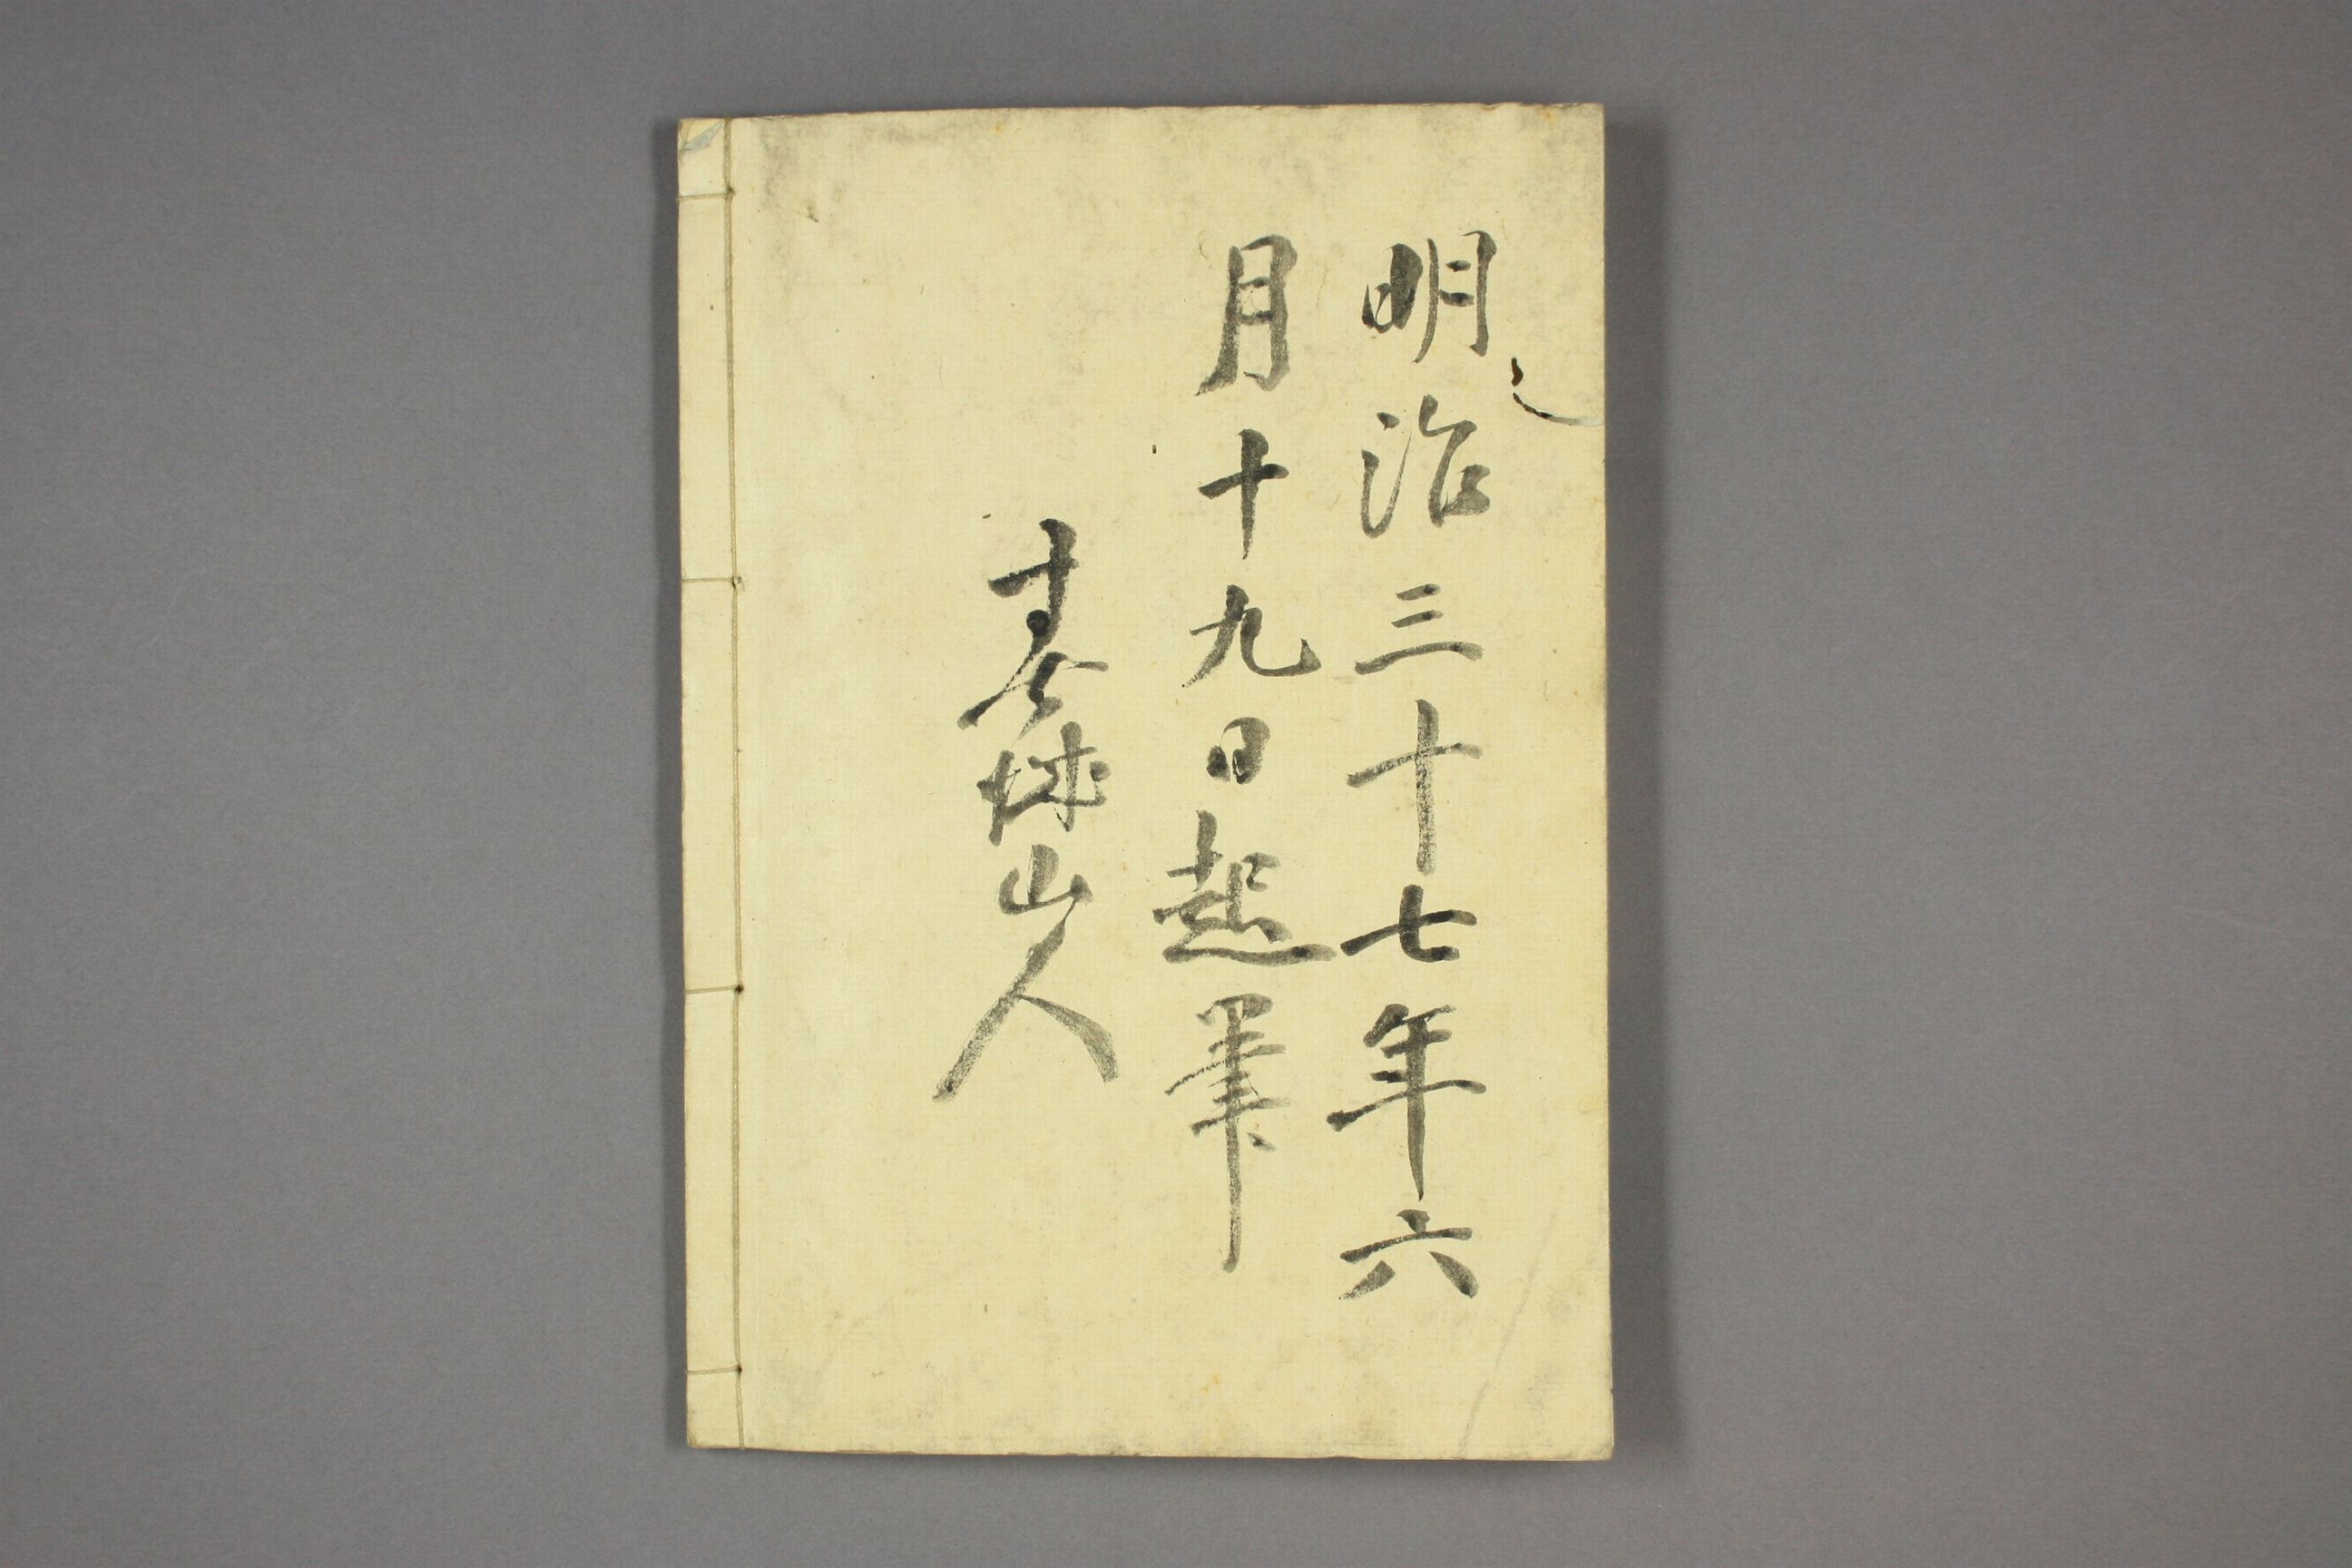 明治三十七年六
月十九日起筆
山人